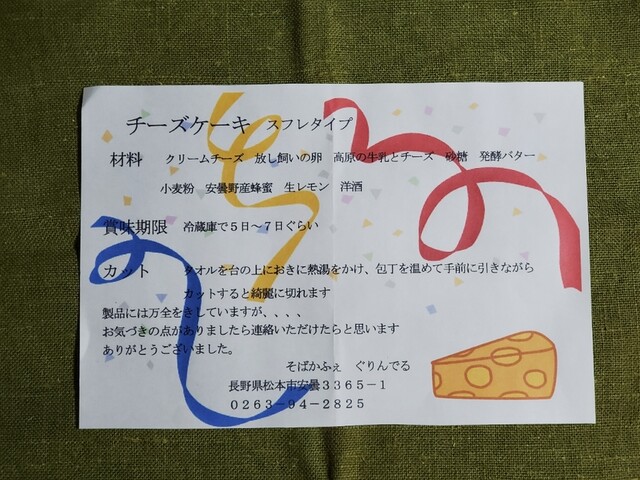 チーズケーキ スフレタイプ
材料 クリームチーズ 放し飼いの卵 高原の牛乳とチーズ 砂糖 発酵バター
小麦粉 安曇野産蜂蜜 生レモン 洋酒
賞味期限 冷蔵庫で５日～７日ぐらい
カット タオルを台の上におきに熱湯をかけ、包丁を温めて手前に引きながら
カットすると綺麗に切れます
製品には万全をきしていますが、、、、
お気づきの点がありましたら連絡いただけたらと思います
ありがとうございました。
そばかふぇ ぐりんでる
長野県松本市安曇３３６５－１
０２６３－９４－２８２５